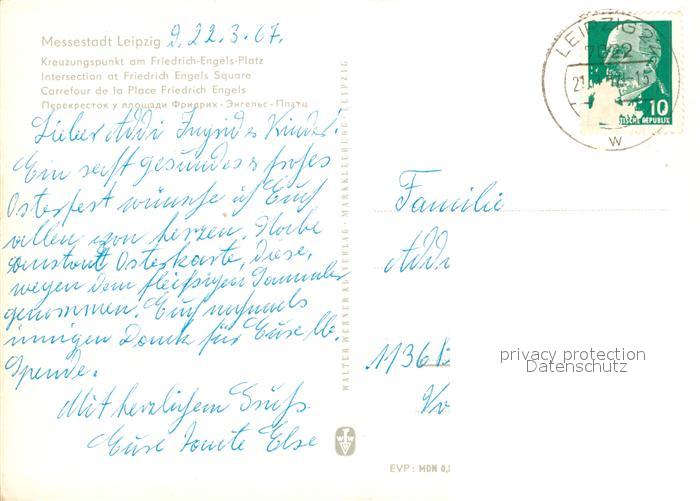 Messestadt Leipzig 9, 22.3.67.
Kreuzungspunkt am Friedrich-Engels-Platz
Intersection at Friedrich Engels Square
Carrefour de la Place Friedrich Engels
Перекресток у площади Фридрих-Энгельс-Платц
Lieber Addi Ingrid & Kinder!
Ein recht gesundes & frohes
Osterfest wünsche ich Euch
allen von herzen. Habe
anstatt Osterkarte, diese,
wegen dem fleißigen Sammler
genommen. Euch nochmals
innigen Dank für Eure lb.
Spende.
Mit herzlichem Gruß
Eure Tante Else
WALTER WERNER KG VERLAG · MARKKLEEBERG · LEIPZIG
EVP: MDN 0,
LEIPZIG
7022
w
10
TISCHE REPUBLIK
Familie
Addi
1136 B
privacy protection
Datenschutz